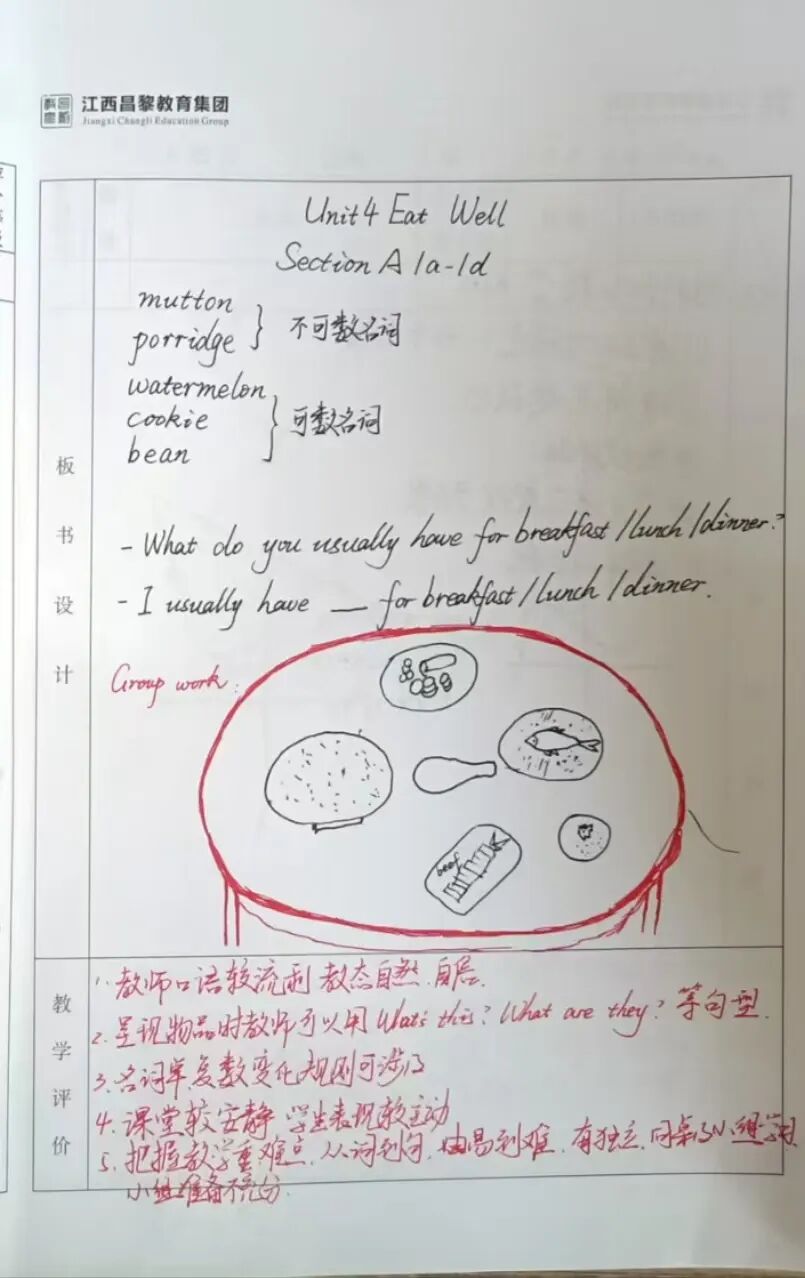 江西昌黎教育集团
Jiangxi Changli Education Group
Unit 4 Eat Well
Section A 1a-1d
mutton
porridge
不可数名词
watermelon
cookie
bean
可数名词
板书设计
- What do you usually have for breakfast / lunch / dinner?
- I usually have __ for breakfast / lunch / dinner.
Group work:
beef
教学评价
1. 教师口语较流利 教态自然、自信.
2. 呈现物品时教师可以用 What's this? What are they? 等句型.
3. 名词单复数变化规则可涉及
4. 课堂较安静 学生表现较主动
5. 把握教学重难点、从词到句、由易到难、有独立、同桌及小组学习
小组准备不充分.